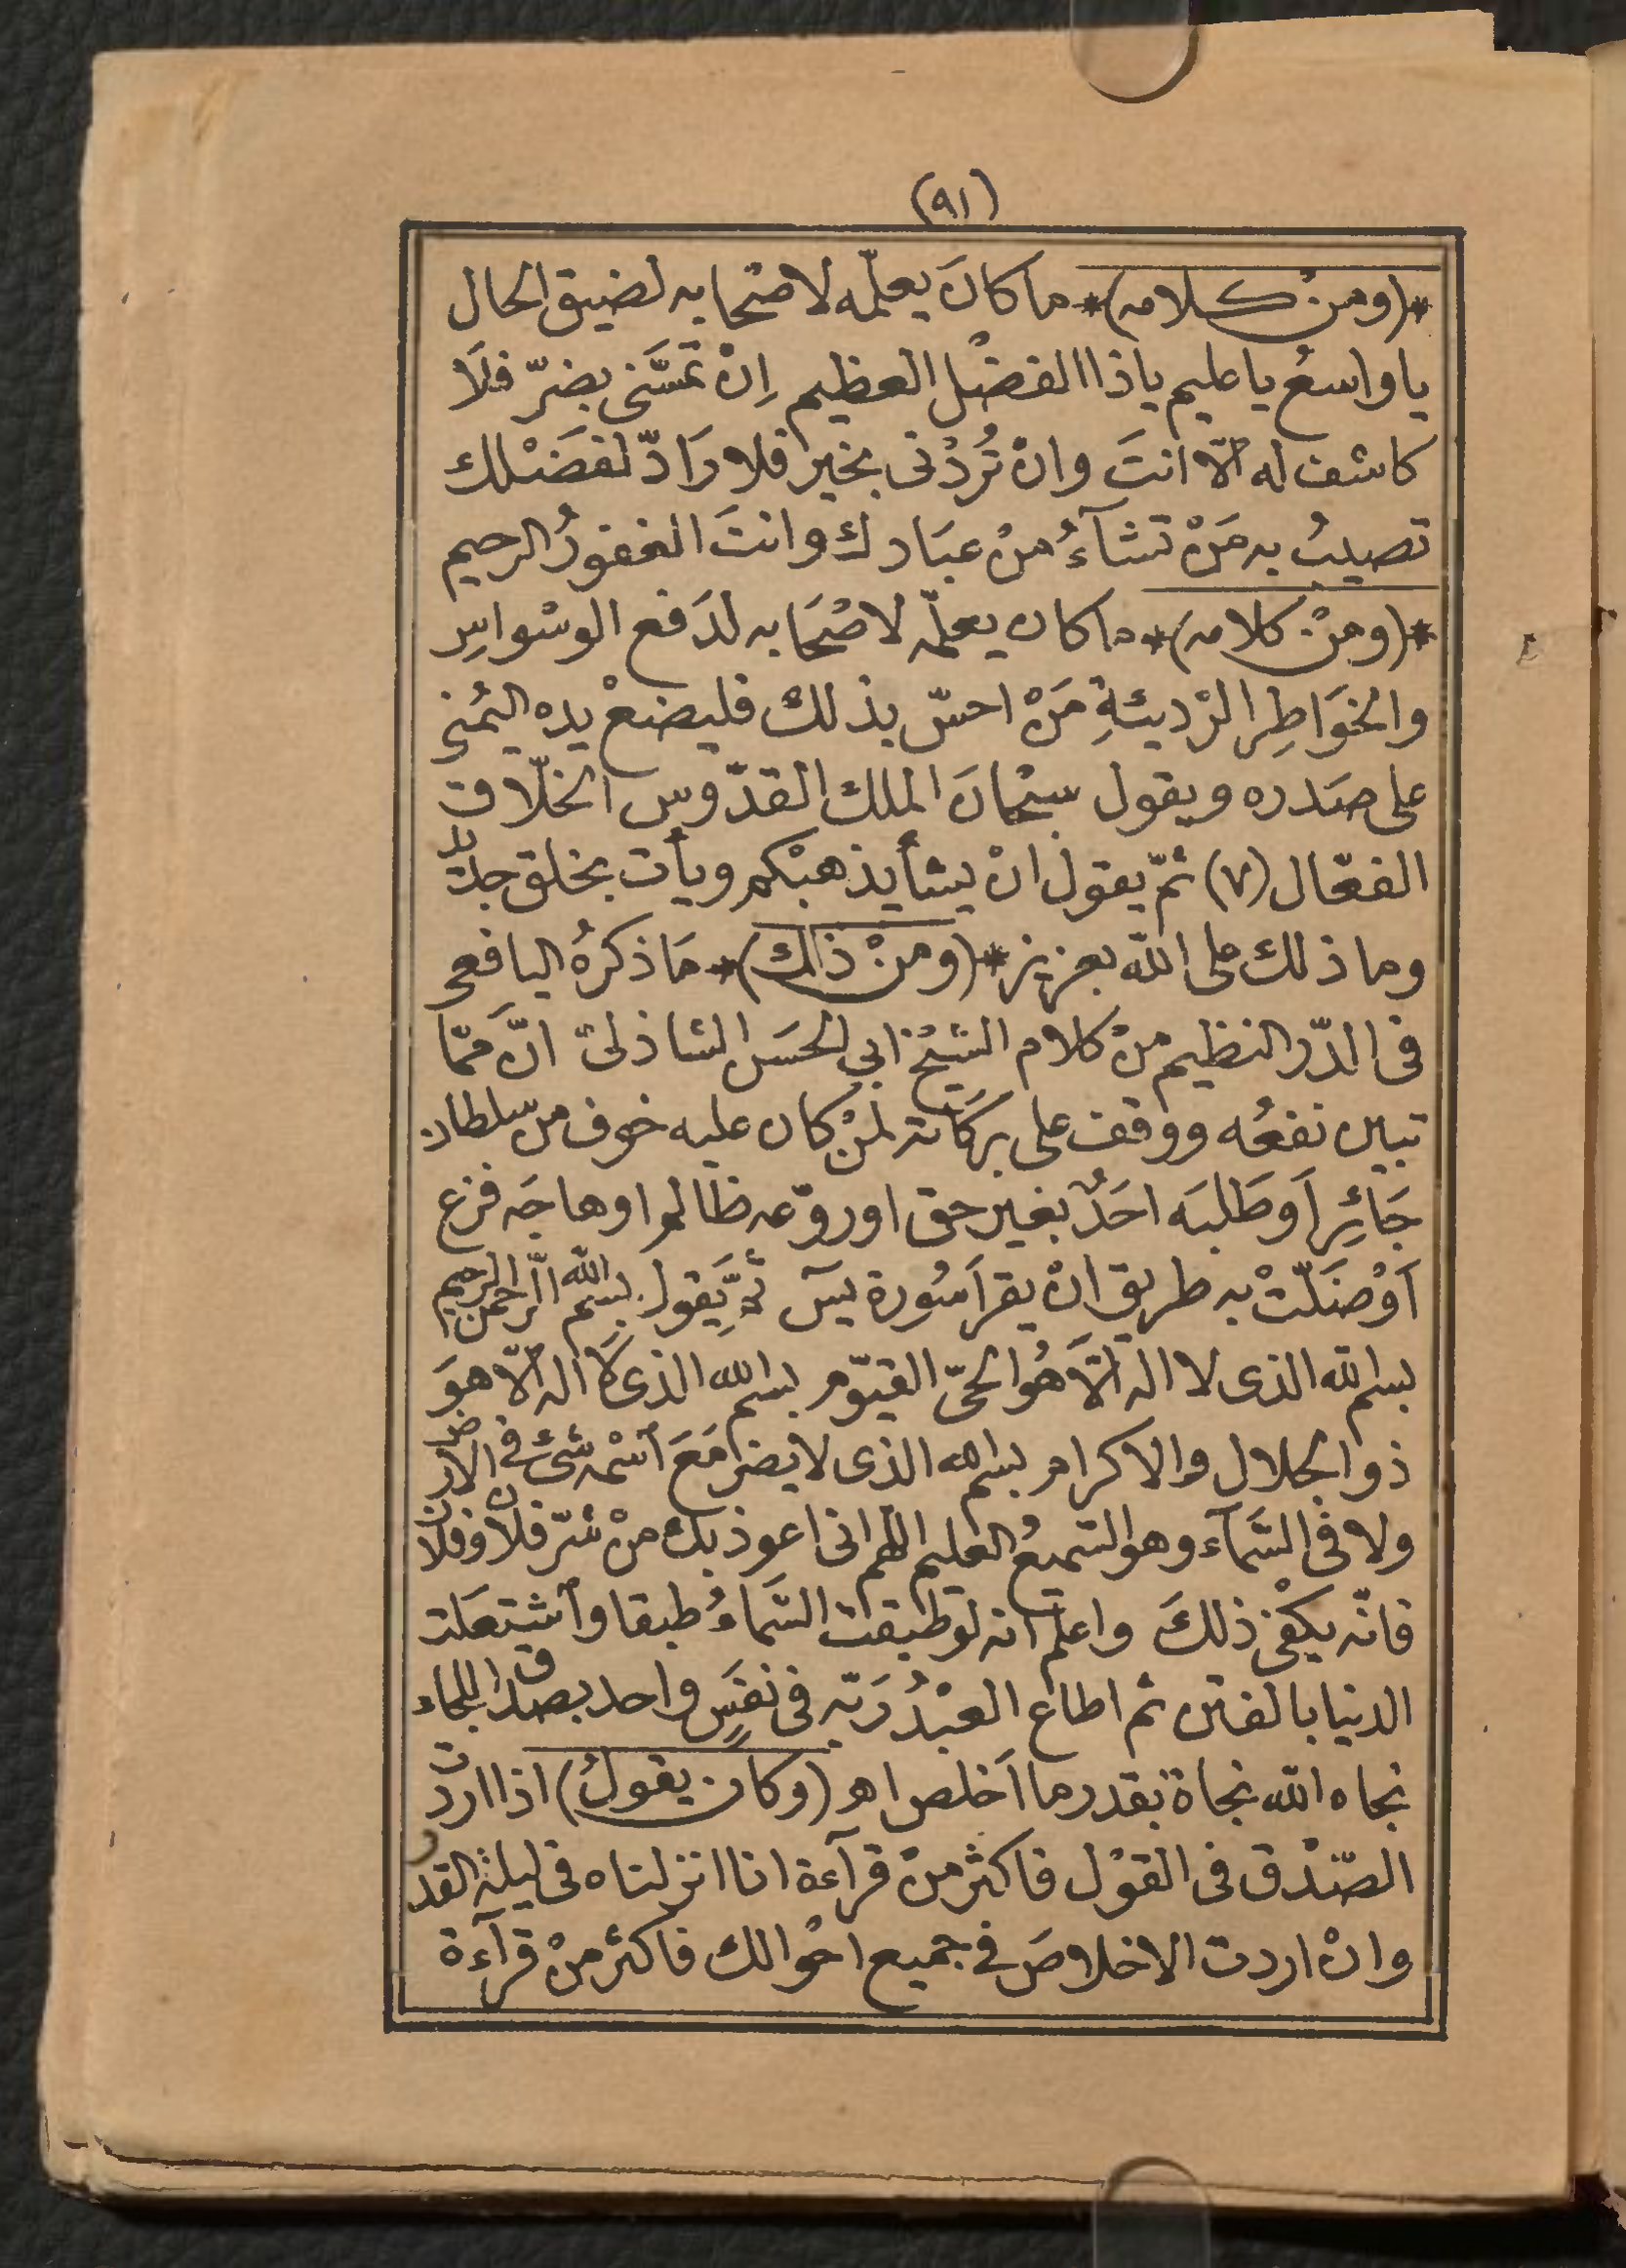 (٩١)
*(ومنْ كلامه)* ما كانَ يعلّمه لاصْحابه لضيق الحال
يا واسعُ يا عليم يا ذا الفضْل العظيم اِنْ تمسَّنى بضرّ فلَا
كاشف له الّا انتَ وانْ تُردْنى بخير فلا رَادّ لفضَلك
تصيبُ به مَنْ تشآءُ منْ عبَادك وانتَ الغفورُ الرحيم
*(ومنْ كلامه)* ما كان يعلّمه لاصْحَابه لدَفع الوسْواسِ
والخوَاطِر الرّديئةِ مَنْ احسّ بذلك فليضعْ يده اليُمنى
على صَدره ويقول سبْحانَ الملك القدّوس الخلّاق
الفعّال (٧) ثمّ يقول انْ يشأ يذهبْكم ويأت بخلق جديد
وما ذلك على الله بعزيز *(ومنْ ذلك)* مَا ذكرهُ اليافعى
فى الدّر النظيم منْ كلام الشيْخ ابي الحسَن الشاذلىّ انَّ ممّا
تبين نفعُه ووقف على بركَاته لمَنْ كان عليه خوف من سلطان
جَائِر اَو طَلبَه احَدٌ بغير حق او روّعه ظالم او هاجَه فزع
اَوْ ضَلّتْ به طريق انْ يقرأ سُورة يسٓ ثمّ يَقول بسم الله الرّحمن الرحيم
بسم الله الذى لا اله الَّا هُو الحىّ القيّوم بسم الله الذى لَا اله الّا هوَ
ذو الجلال والاكرام بسم الله الذى لا يضر مَعَ اسْمه شئ في الارض
ولا فى السَّمآء وهو السّميعُ العليم اللهم انى اعوذ بك منْ شرّ فلان وفلان
فانّه يكفْى ذلكَ واعلم انه لو طبقت السَّماءُ طبقا واشتعَلت
الدنيا بالفتن ثم اطاع العبْدُ رَبّه فى نفَسٍ واحد بصدق اللجاء
نجاه الله نجاة بقدر ما اَخلص اهـ (وكان يقولُ) اذا اردت
الصّدْق فى القوْل فاكثر منْ قرآءة انا انزلناه فى ليلة القدر
وانْ اردت الاخلاصَ في جميع احْوالك فاكثر منْ قرآءة